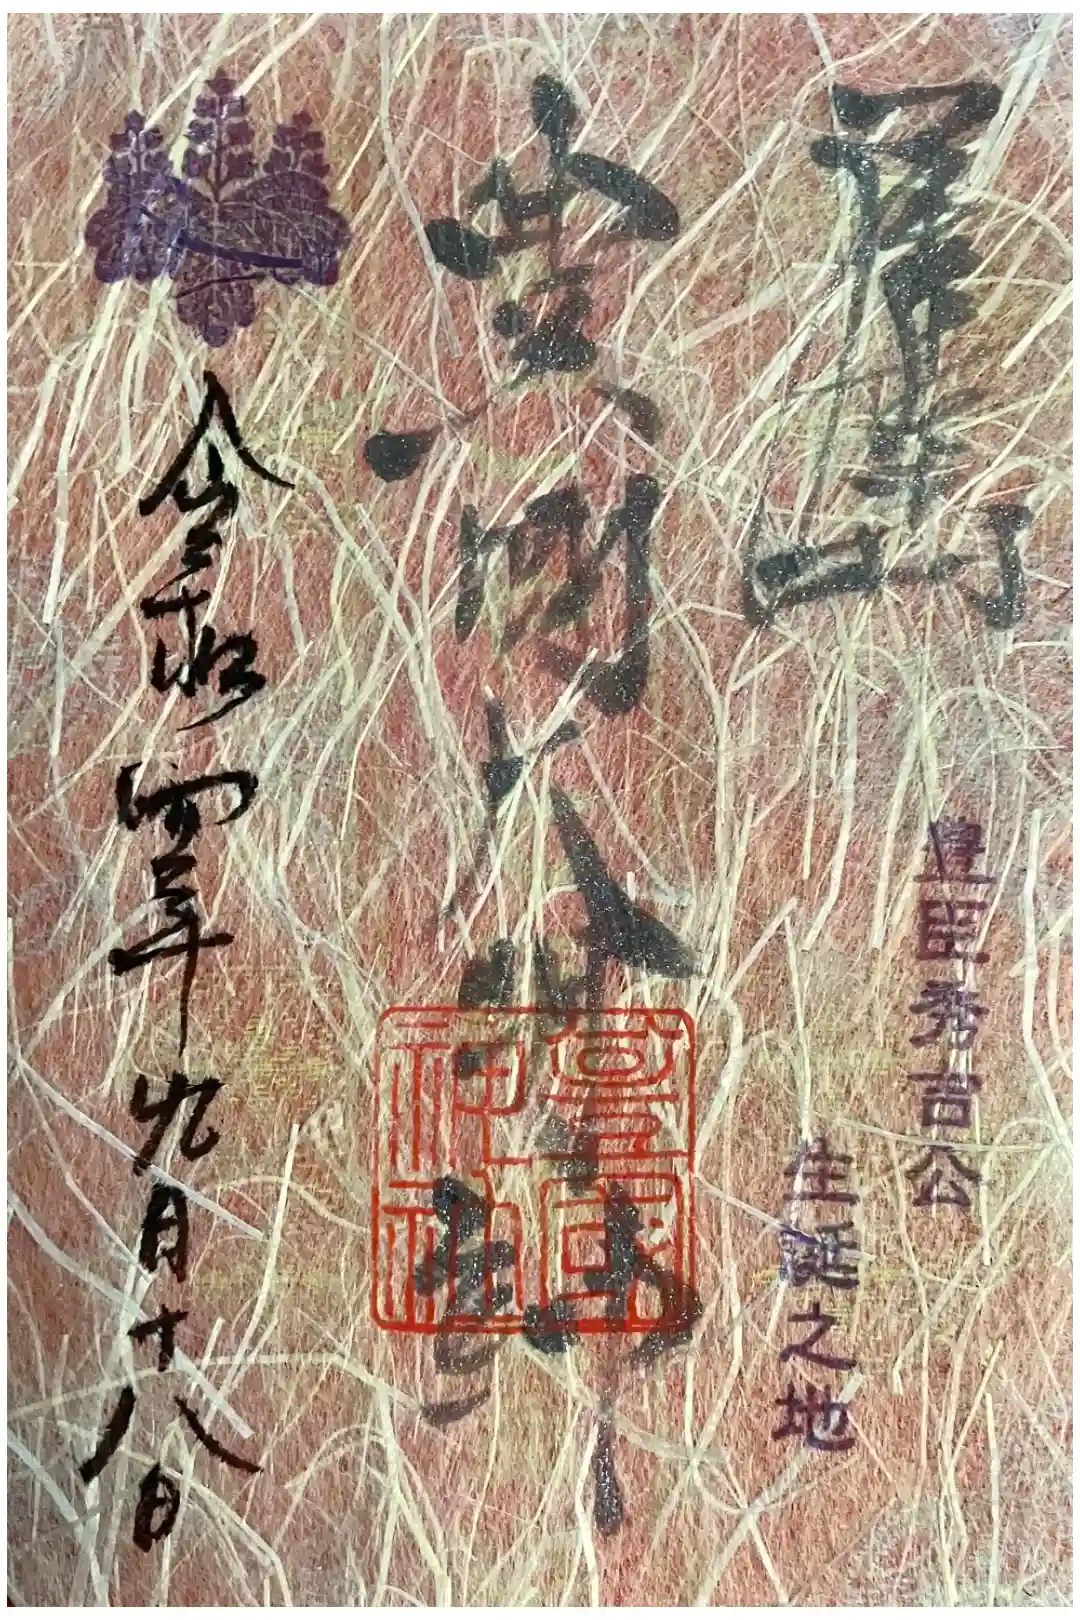 豊臣秀吉公
生誕之地
豊国大明神
豊國
神社
令和四年九月十八日